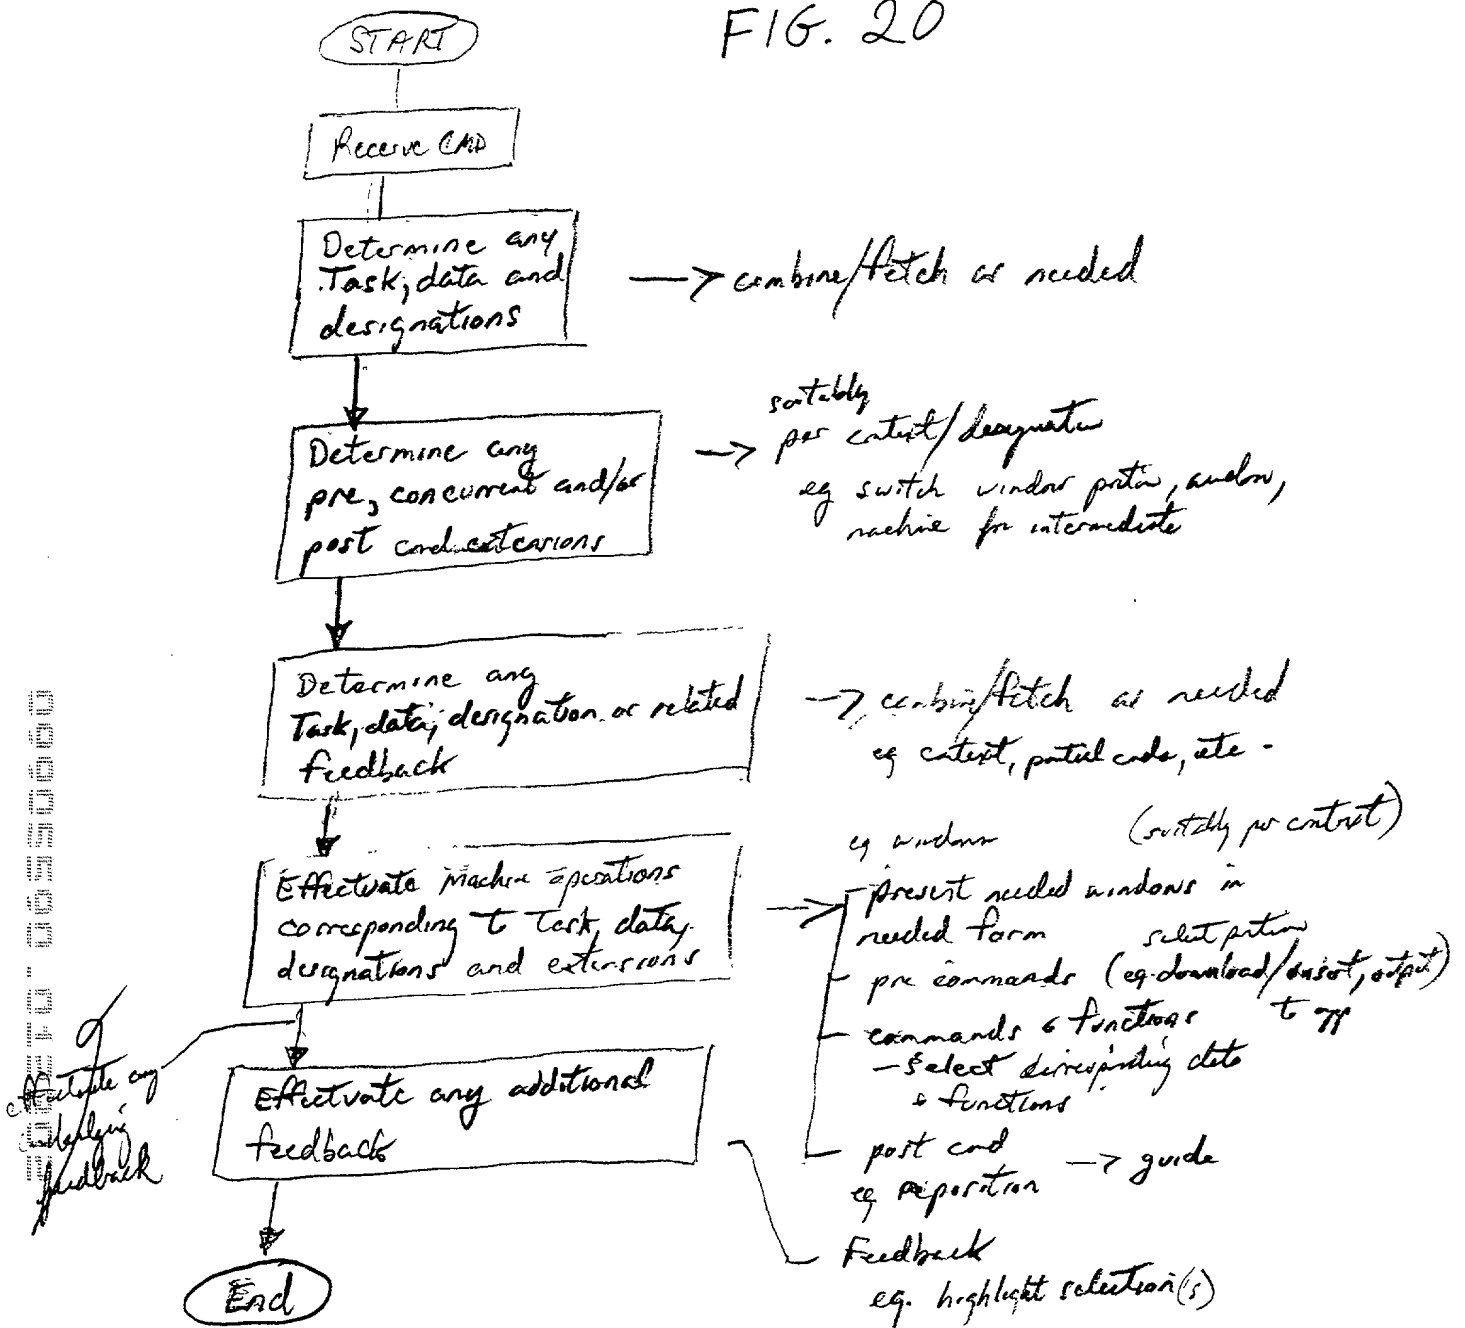 FIG. 20
START
Receive CMD
Determine any
Task, data and
designations
→ combine/fetch as needed
Determine any
pre, concurrent and/or
post cmd extensions
suitably
→ per context/designation
eg switch window portion, window,
machine for intermediate
Determine any
Task, data, designation or related
feedback
→ combine/fetch as needed
eg context, partial cmds, etc.
Effectuate machine operations
corresponding to Task, data,
designations and extensions
eg windows (suitably per context)
- present needed windows in
needed form select portion
- pre commands (eg download/insert, output)
to app
- commands & functions
- select corresponding data
& functions
post cmd → guide
eg reposition
effectuate any
underlying
feedback
Effectuate any additional
feedback
Feedback
eg. highlight selection(s)
End